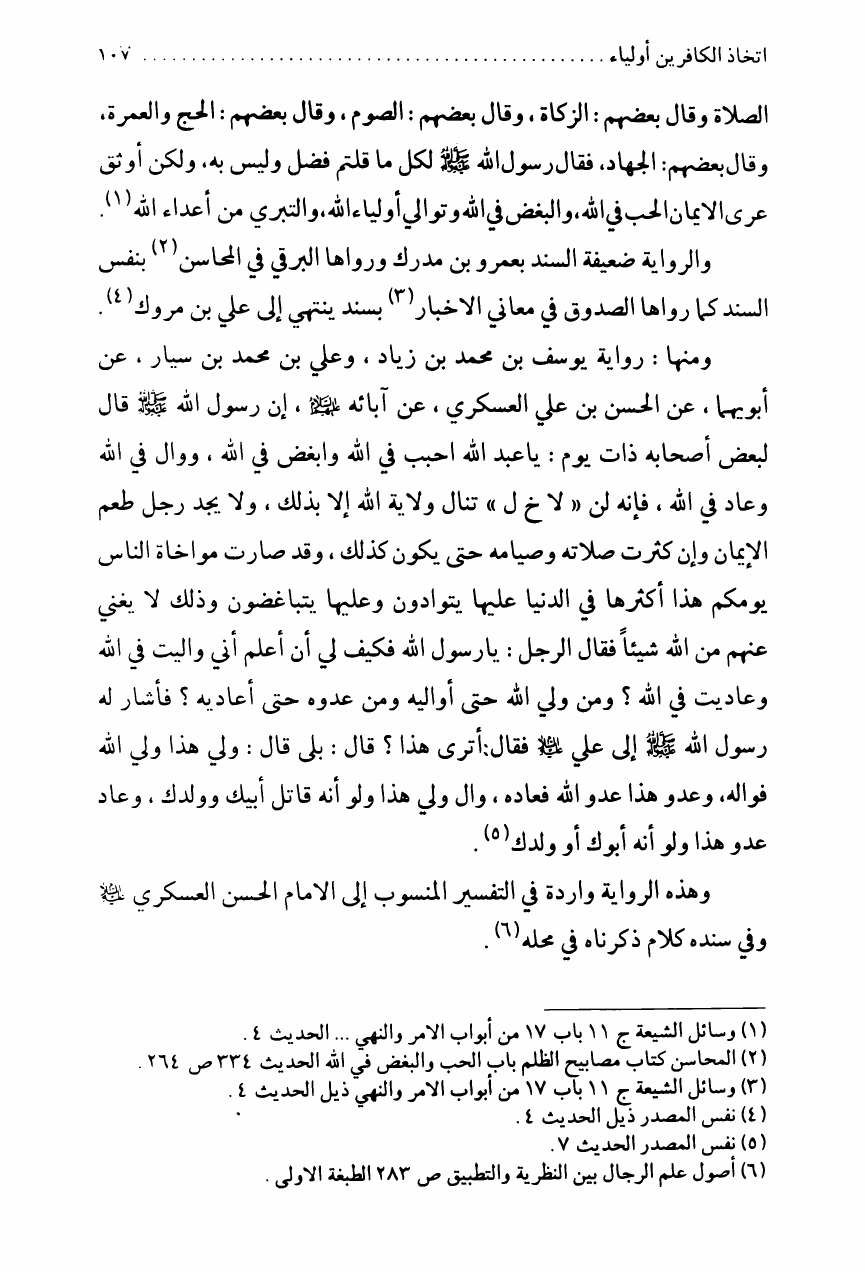 اتخاذ الكافرين أولياء ................................................ ١٠٧
الصلاة وقال بعضهم : الزكاة ، وقال بعضهم : الصوم ، وقال بعضهم : الحج والعمرة،
وقال بعضهم: الجهاد، فقال رسول الله ﷺ لكل ما قلتم فضل وليس به، ولكن أوثق
عرى الايمان الحب في الله، والبغض في الله وتوالي أولياء الله، والتبري من أعداء الله(١).
والرواية ضعيفة السند بعمرو بن مدرك ورواها البرقي في المحاسن(٢) بنفس
السند كما رواها الصدوق في معاني الاخبار(٣) بسند ينتهي إلى علي بن مروك(٤).
ومنها : رواية يوسف بن محمد بن زياد ، وعلي بن محمد بن سيار ، عن
أبويهما ، عن الحسن بن علي العسكري ، عن آبائه ، إن رسول الله ﷺ قال
لبعض أصحابه ذات يوم : ياعبد الله احبب في الله وابغض في الله ، ووال في الله
وعاد في الله ، فإنه لن « لا خ ل » تنال ولاية الله إلا بذلك ، ولا يجد رجل طعم
الإيمان وإن كثرت صلاته وصيامه حتى يكون كذلك ، وقد صارت مواخاة الناس
يومكم هذا أكثرها في الدنيا عليها يتوادون وعليها يتباغضون وذلك لا يغني
عنهم من الله شيئاً فقال الرجل : يارسول الله فكيف لي أن أعلم أني واليت في الله
وعاديت في الله ؟ ومن ولي الله حتى أواليه ومن عدوه حتى أعاديه ؟ فأشار له
رسول الله ﷺ إلى علي فقال:أترى هذا ؟ قال : بلى قال : ولي هذا ولي الله
فواله، وعدو هذا عدو الله فعاده ، وال ولي هذا ولو أنه قاتل أبيك وولدك ، وعاد
عدو هذا ولو أنه أبوك أو ولدك(٥).
وهذه الرواية واردة في التفسير المنسوب إلى الامام الحسن العسكري
وفي سنده كلام ذكرناه في محله(٦).
(١) وسائل الشيعة ج ١١ باب ١٧ من أبواب الامر والنهي ... الحديث ٤ .
(٢) المحاسن كتاب مصابيح الظلم باب الحب والبغض في الله الحديث ٣٣٤ ص ٢٦٤ .
(٣) وسائل الشيعة ج ١١ باب ١٧ من أبواب الامر والنهي ذيل الحديث ٤ .
(٤) نفس المصدر ذيل الحديث ٤ .
(٥) نفس المصدر الحديث ٧.
(٦) أصول علم الرجال بين النظرية والتطبيق ص ٢٨٣ الطبعة الاولى .